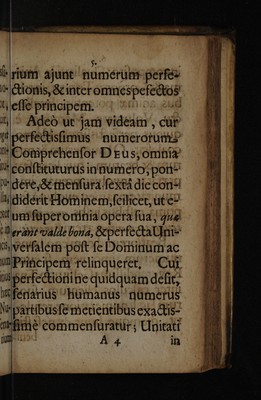 5.
rium ajunt numerum perfe-
ctionis, & inter omnes pefectos
esse principem.
Adeò ut jam videam, cur
perfectissimus numerorum
Comprehensor DEUS, omnia
constituturus in numero, pon-
dere, & mensura sextâ die con-
diderit Hominem, scilicet, ut e-
um super omnia opera sua, quæ
erant valde bona, & perfecta Uni-
versalem post se Dominum ac
Principem relinqueret. Cui
perfectioni ne quidquam desit,
senarius humanus numerus
partibus se metientibus exactis-
sime commensuratur; Unitati
A 4 in